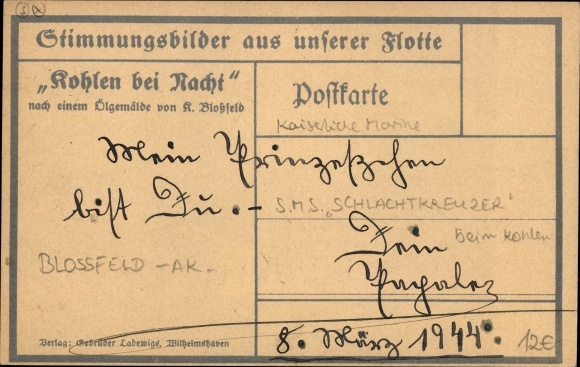 Stimmungsbilder aus unserer Flotte
„Kohlen bei Nacht“
nach einem Ölgemälde von K. Bloßfeld
Postkarte
Kaiserliche Marine
Mein Prinzeßchen
bist Du. -
S.M.S. „SCHLACHTKREUZER“
beim Kohlen
Dein
BLOSSFELD - AK -
8. März 1944.
12€
Verlag: Gebrüder Ladewigs, Wilhelmshaven